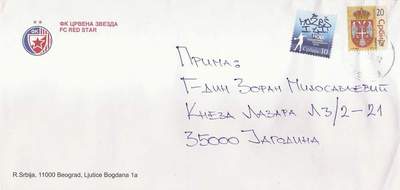 ФК ЦРВЕНА ЗВЕЗДА
FC RED STAR
MOŽEŠ
I TI
10
20
Србија
Прима:
Г-дин Зоран Милосављевић
Кнеза Лазара Л3/2-21
35000 Јагодина
R.Srbija, 11000 Beograd, Ljutice Bogdana 1a